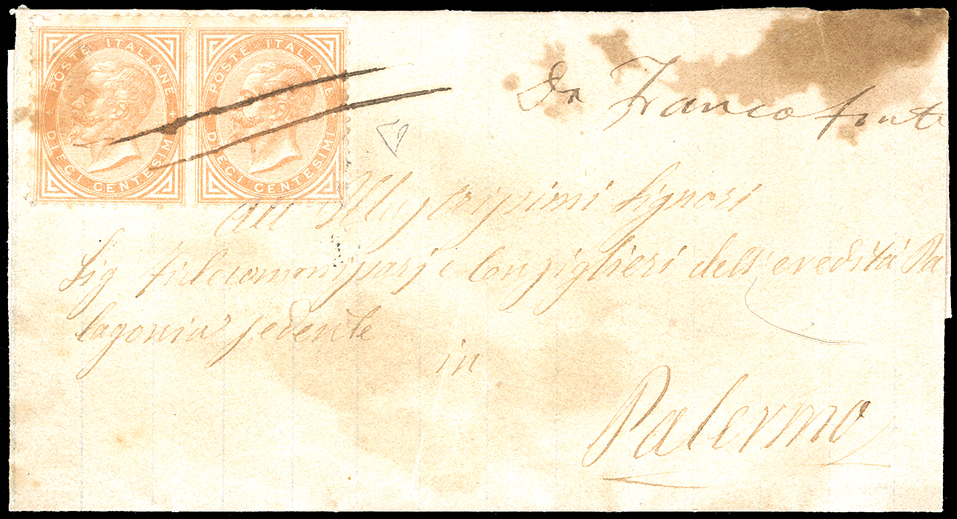 POSTE ITALIANE DIECI CENTESIMI
POSTE ITALIANE DIECI CENTESIMI
Da Francofonte
All' Illustrissimi Signori
Sig fidecommissarj e Consiglieri dell'eredità Pa
lagonia sedente
in
Palermo